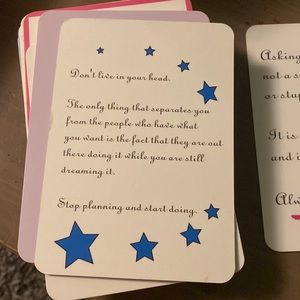 Don't live in your head.
The only thing that separates you
from the people who have what
you want is the fact that they are out
there doing it while you are still
dreaming it.
Stop planning and start doing.
Asking
not a s
or stup
It is
and i
Alw